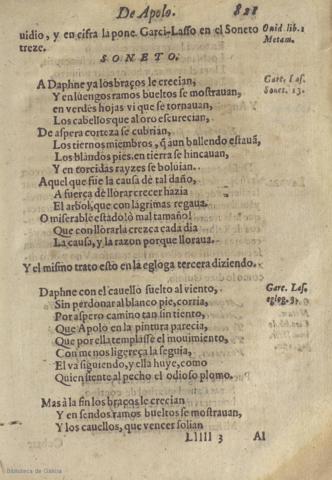 De Apolo. 821
uidio, y en cifra la pone. Garci-Lasso en el Soneto
Ouid lib. 1
Metam.
treze.
SONETO.
A Daphne ya los braços le crecian,
Garc. Las.
Sonet. 13.
Y en luengos ramos bueltos se mostrauan,
en verdes hojas vi que se tornauan,
Los cabellos que al oro escurecian;
De aspera corteza se cubrian,
Los tiernos miembros, q̃ aun bullendo estauã,
Los blandos pies, en tierra se hincauan,
Y en torcidas rayzes se boluian.
Aquel que fue la causa de tal daño,
A fuerça de llorar crecer hazia
El arbol, que con lágrimas regaua.
O miserable estado! ò mal tamaño!
Que con llorarla crezca cada dia
La causa, y la razon porque lloraua.
Y el mismo trato esto en la egloga tercera diziendo.
Daphne con el cauello suelto al viento,
Garc. Las.
eglog. 3.
Sin perdonar al blanco pie, corria,
Por aspero camino tan sin tiento,
Que Apolo en la pintura parecia,
Que por ella templasse el mouimiento,
Con menos ligereça la seguia,
El va siguiendo, y ella huye, como
Quien siente al pecho el odioso plomo.
Mas à la fin los braços le crecian
Y en sendos ramos bueltos se mostrauan,
Y los cauellos, que vencer solian
LIIII 3 Al
Biblioteca de Galicia